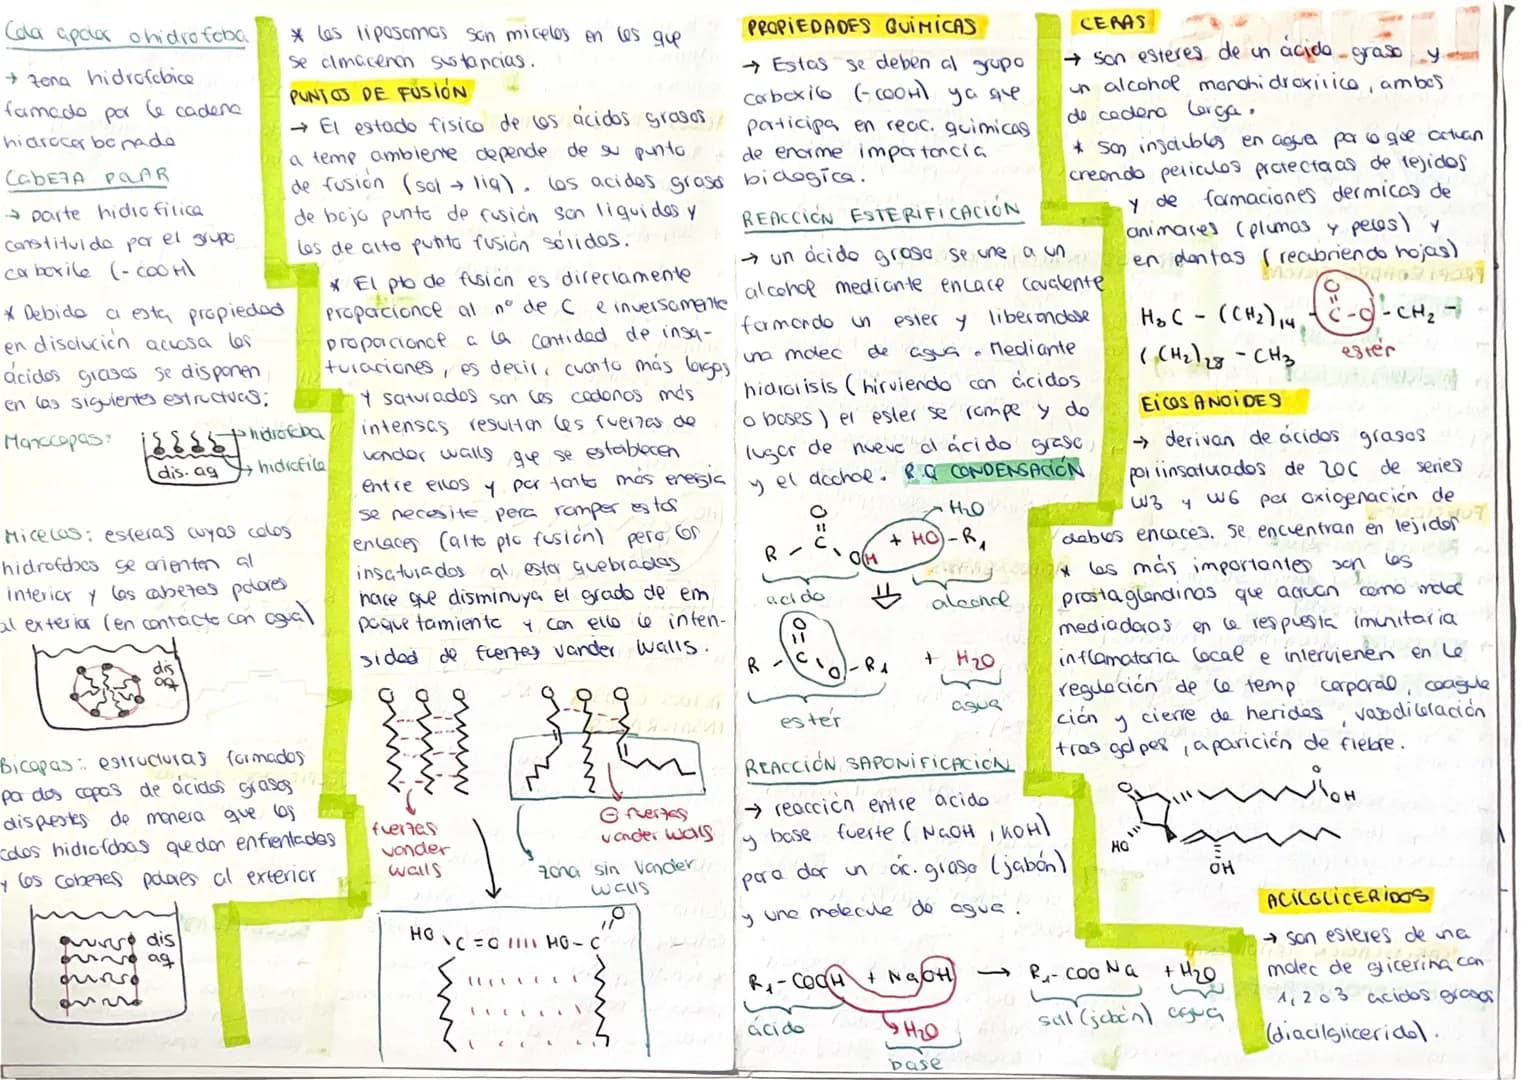 Cola apolar o hidrofoba
→ zona hidrofobica
formada por la cadena
hidrocarbonada
CABEZA POLAR
→ parte hidrofilica
constituida por el grupo
carboxilo (-COOH)
* Debido a esta propiedad
en disolución acuosa los
ácidos grasos se disponen
en las siguientes estructuras:
Monocapas:
hidrofoba
dis. aq
hidrofila
Micelas: esferas cuyas colas
hidrofobas se orientan al
interior y las cabezas polares
al exterior (en contacto con agua)
dis
aq
Bicapas: estructuras formadas
por dos capas de ácidos grasos
dispuestas de manera que las
colas hidrofobas quedan enfrentadas
y las cabezas polares al exterior
dis
aq
* Los liposomas son micelas en las que
se almacenan sustancias.
PUNTOS DE FUSIÓN
→ El estado físico de los ácidos grasos
a temp ambiente depende de su punto
de fusión (sol → liq). Los acidos grasos
de bajo punto de fusión son liquidos y
los de alto punto fusión sólidos.
* El pto de fusión es directamente
proporcional al nº de C e inversamente
proporcional a la cantidad de insa-
turaciones, es decir, cuanto más largas
y saturadas son las cadenas más
intensas resultan las fuerzas de
vander walls que se establecen
entre ellos y por tanto más energia
se necesita para romper estos
enlaces (alto pto fusión) pero los
insaturados al estar quebradas
hace que disminuya el grado de em
paquetamiento y con ello la inten-
sidad de fuerzas vander walls.
fuerzas
vander
walls
⊖ fuerzas
vander walls
zona sin vander
walls
HO
C=O IIII HO-C
O
PROPIEDADES QUÍMICAS
→ Estas se deben al grupo
carboxilo (-COOH) ya que
participa en reac. quimicas
de enorme importancia
biologica.
REACCIÓN ESTERIFICACIÓN
→ un ácido graso se une a un
alcohol mediante enlace covalente
formando un ester y liberandose
una molec de agua. Mediante
hidrolisis (hirviendo con ácidos
o bases) el ester se rompe y da
lugar de nuevo al ácido graso
y el alcohol. R.Q CONDENSACIÓN
O
H2O
R - C OH + HO - R1
acido
alcohol
O
R - C O - R1 + H2O
ester
agua
REACCIÓN SAPONIFICACIÓN
→ reacción entre ácido
y base fuerte (NaOH, KOH)
para dar un ác. graso (jabón)
y una molecula de agua.
R1-COOH + NaOH → R1-COONa + H2O
ácido
H2O
base
sal (jabón) agua
CERAS
→ son esteres de un ácido graso y
un alcohol monohidroxilico, ambos
de cadena larga.
* Son insolubles en agua por lo que actuan
creando peliculas protectoras de tejidos
y de formaciones dermicas de
animales (plumas y pelos) y
en plantas (recubriendo hojas)
O
H3C - (CH2)14 - C-O - CH2 -
(CH2)28 - CH3
ester
EICOSANOIDES
→ derivan de ácidos grasos
poliinsaturados de 20C de series
W3 y W6 por oxigenación de
dobles enlaces. Se encuentran en tejidos
* Las más importantes son las
prostaglandinas que actuan como molec
mediadoras en la respuesta imunitaria
inflamatoria local e intervienen en la
regulación de la temp corporal, coagula
ción y cierre de heridas, vasodilatación
tras golpes, aparición de fiebre.
O
O
OH
HO
OH
ACILGLICERIDOS
→ son esteres de una
molec de glicerina con
1, 2 o 3 acidos grasos
(diacilglicerido).